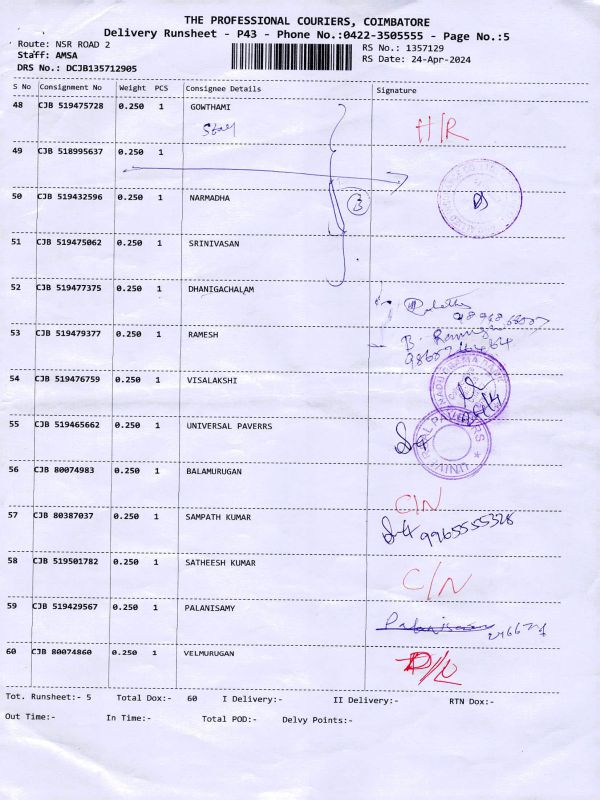 THE PROFESSIONAL COURIERS, COIMBATORE
Delivery Runsheet - P43 - Phone No.:0422-3505555 - Page No.:5
Route: NSR ROAD 2
RS No.: 1357129
Staff: AMSA
RS Date: 24-Apr-2024
DRS No.: DCJB135712905
S No Consignment No Weight PCS Consignee Details Signature
48 CJB 519475728 0.250 1 GOWTHAMI
H/R
49 CJB 518995637 0.250 1
50 CJB 519432596 0.250 1 NARMADHA
3
51 CJB 519475062 0.250 1 SRINIVASAN
52 CJB 519477375 0.250 1 DHANIGACHALAM
53 CJB 519479377 0.250 1 RAMESH
B. Ramesh
54 CJB 519476759 0.250 1 VISALAKSHI
55 CJB 519465662 0.250 1 UNIVERSAL PAVERRS
56 CJB 80074983 0.250 1 BALAMURUGAN
C/N
57 CJB 80387037 0.250 1 SAMPATH KUMAR
9965555328
58 CJB 519501782 0.250 1 SATHEESH KUMAR
C/N
59 CJB 519429567 0.250 1 PALANISAMY
60 CJB 80074860 0.250 1 VELMURUGAN
D/L
Tot. Runsheet:- 5 Total Dox:- 60 I Delivery:- II Delivery:- RTN Dox:-
Out Time:- In Time:- Total POD:- Delvy Points:-